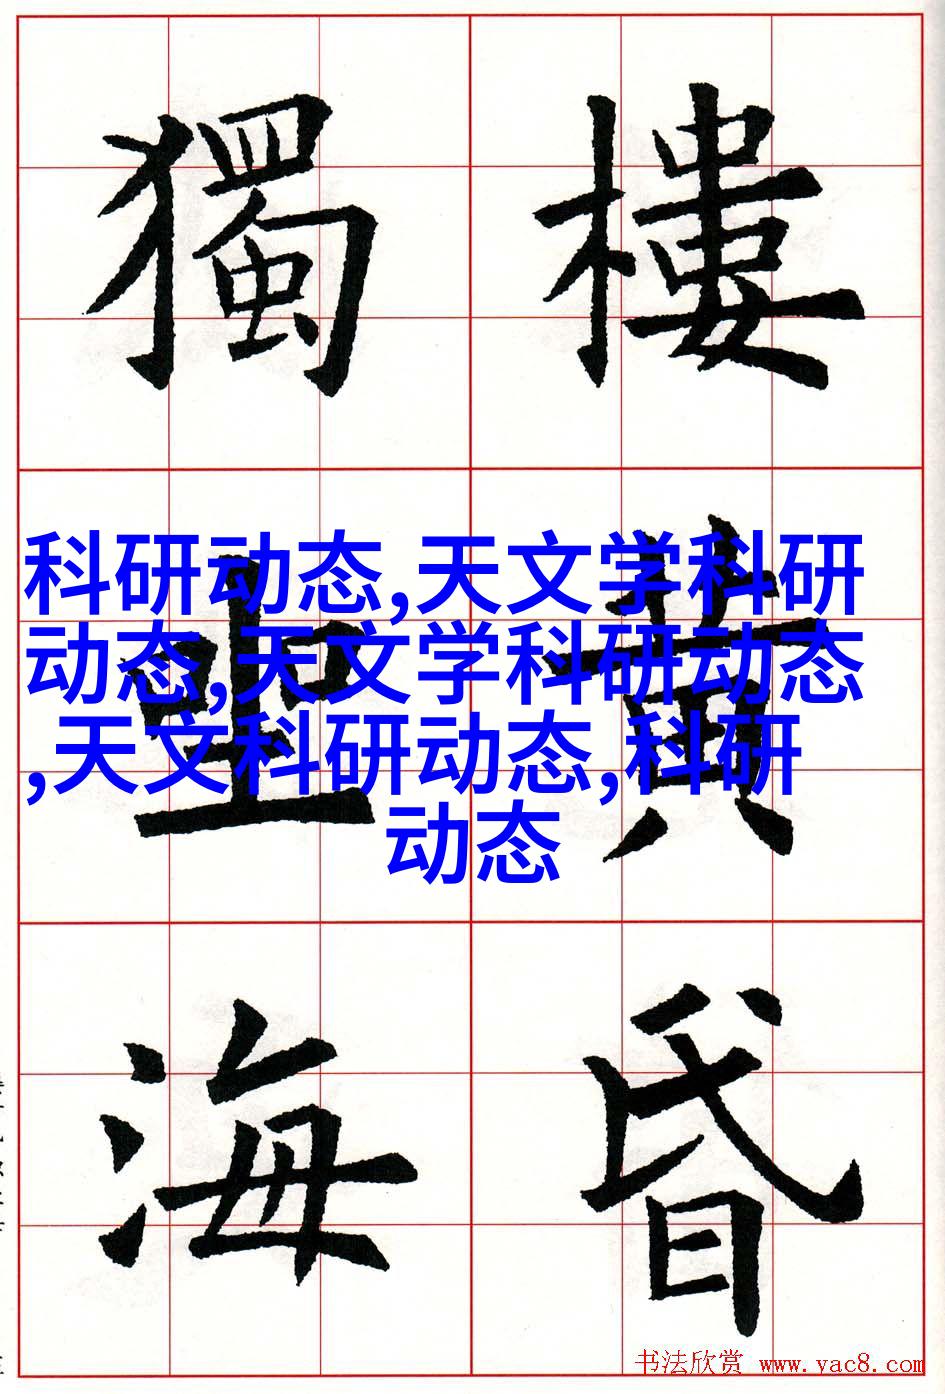 樓黄昏
獨坐海
科研动态,天文学科研
动态,天文学科研动态
,天文科研动态,科研
动态
书法欣赏 www.yac8.com